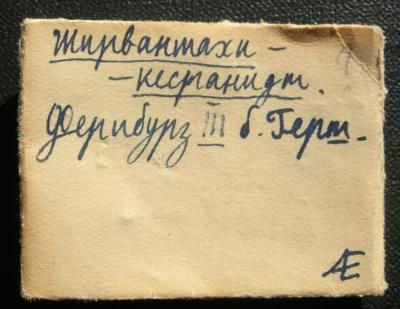 Ширваншахи –
– кесраниды.
Ферибурз III б. Герш.
Æ